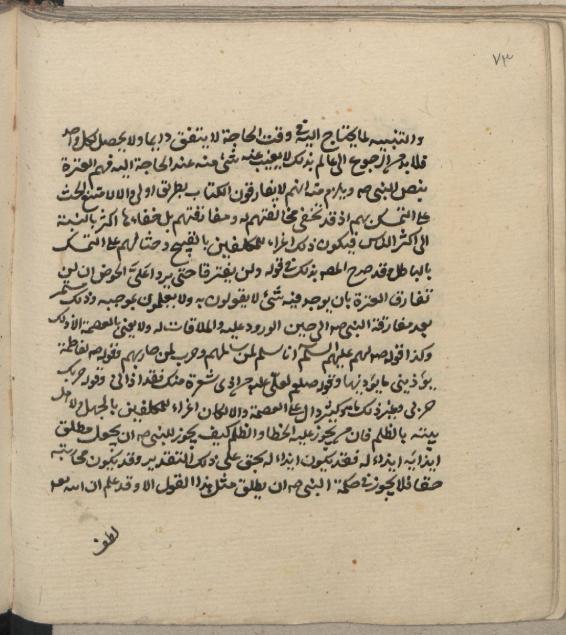 ٧٣
والتنبيه لما يحتاج اليه فى وقت الحاجة لا يتفق دايما ولا يحصل لكل واحد
فلا بد من الرجوع الى عالم بذلك لا يغيب عنه شئ منه عند الحاجة اليه فهم العترة
بنص النبى صه ويلزم منه انهم لا يفارقون الكتاب بطريق اولى والا لامتنع الحث
على التمسك بهم اذ قد تخفى مخالفتهم له ومفارقتهم بل خفاءها اكثر بالنسبة
الى اكثر الناس فيكون ذلك اغراء للمكلفين بالقبيح وحثا لهم على التمسك
بالباطل وقد صرح المصه بذلك فى قوله ولن يفترقا حتى يردا على الحوض ان لن
تفارق العترة بان يوجد فيه شئ لا يقولون به ولا يعملون بموجبه وذلك مستمر
بعد مفارقة النبى صه الى حين الورود عليه والملاقات له ولا يعنى بالعصمة الا ذلك
وكذا قوله صه لهم عليهم السلم انا سلم لمن سالمهم وحرب لمن حاربهم وقوله صه لفاطمة
يؤذينى ما يؤذيها وقوله صلعم لعلى عليه من اذى شعرة منك فقد اذانى وقوله حربك
حربى وغير ذلك مما يدل على العصمة والا لكان اغراء للمكلفين بالجهل ولاهل
بيته بالظلم فان من يجوز عليه الخطا والظلم كيف يجوز للنبى صه ان يجعل مطلق
ايذائه ايذاء له فقد يكون ايذاء له بحق على ذلك التقدير وقد يكون محاربته
حقا فلا يجوز فى حكمة النبى صه ان يطلق مثل هذا القول الا وقد علم ان الله تعه
لطف